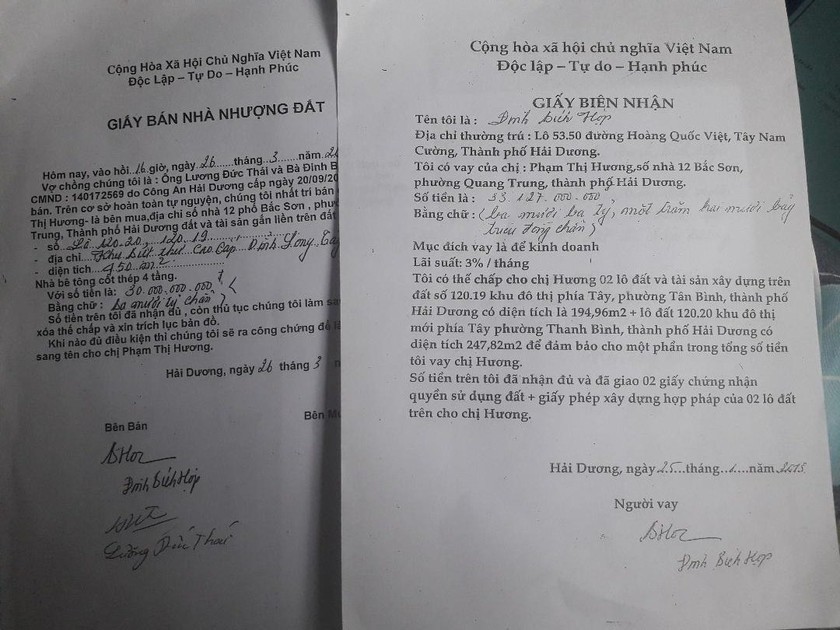 Cộng Hòa Xã Hội Chủ Nghĩa Việt Nam
Độc Lập – Tự Do – Hạnh Phúc
GIẤY BÁN NHÀ NHƯỢNG ĐẤT
Hôm nay, vào hồi 16 giờ, ngày 26 tháng 3 năm
Vợ chồng chúng tôi là : Ông Lương Đức Thái và Bà Đinh B
CMND : 140172569 do Công An Hải Dương cấp ngày 20/09/20
bán. Trên cơ sở hoàn toàn tự nguyện, chúng tôi nhất trí bán
Thị Hương- là bên mua,địa chỉ số nhà 12 phố Bắc Sơn , phư
Trung, Thành phố Hải Dương đất và tài sản gắn liền trên đất
- số Lô 120.20, 120.19
- địa chỉ Khu biệt thự cao cấp Đỉnh Long
- diện tích 450 m2
Nhà bê tông cốt thép 4 tầng.
Với số tiền là: 30.000.000.000
Bằng chữ: (ba mươi tỷ chẵn)
Số tiền trên tôi đã nhận đủ , còn thủ tục chúng tôi làm sa
xóa thế chấp và xin trích lục bản đồ.
Khi nào đủ điều kiện thì chúng tôi sẽ ra công chứng để l
sang tên cho chị Phạm Thị Hương.
Hải Dương, ngày 26 tháng 3
Bên Bán
Bên M
Đinh Bích Hợp
Lương Đức Thái
Cộng hòa xã hội chủ nghĩa Việt Nam
Độc lập – Tự do – Hạnh phúc
GIẤY BIÊN NHẬN
Tên tôi là : Đinh Bích Hợp
Địa chỉ thường trú : Lô 53.50 đường Hoàng Quốc Việt, Tây Nam
Cường, Thành phố Hải Dương.
Tôi có vay của chị : Phạm Thị Hương,số nhà 12 Bắc Sơn,
phường Quang Trung, thành phố Hải Dương.
Số tiền là : 33.127.000.000
Bằng chữ: (ba mươi ba tỷ, một trăm hai mươi bảy
triệu đồng chẵn)
Mục đích vay là để kinh doanh
Lãi suất: 3% / tháng
Tôi có thế chấp cho chị Hương 02 lô đất và tài sản xây dựng trên
đất số 120.19 khu đô thị phía Tây, phường Tân Bình, thành phố
Hải Dương có diện tích là 194,96m2 + lô đất 120.20 khu đô thị
mới phía Tây phường Thanh Bình, thành phố Hải Dương có
diện tích 247,82m2 để đảm bảo cho một phần trong tổng số tiền
tôi vay chị Hương.
Số tiền trên tôi đã nhận đủ và đã giao 02 giấy chứng nhận
quyền sử dụng đất + giấy phép xây dựng hợp pháp của 02 lô đất
trên cho chị Hương.
Hải Dương, ngày 25 tháng 1 năm 2015
Người vay
Đinh Bích Hợp